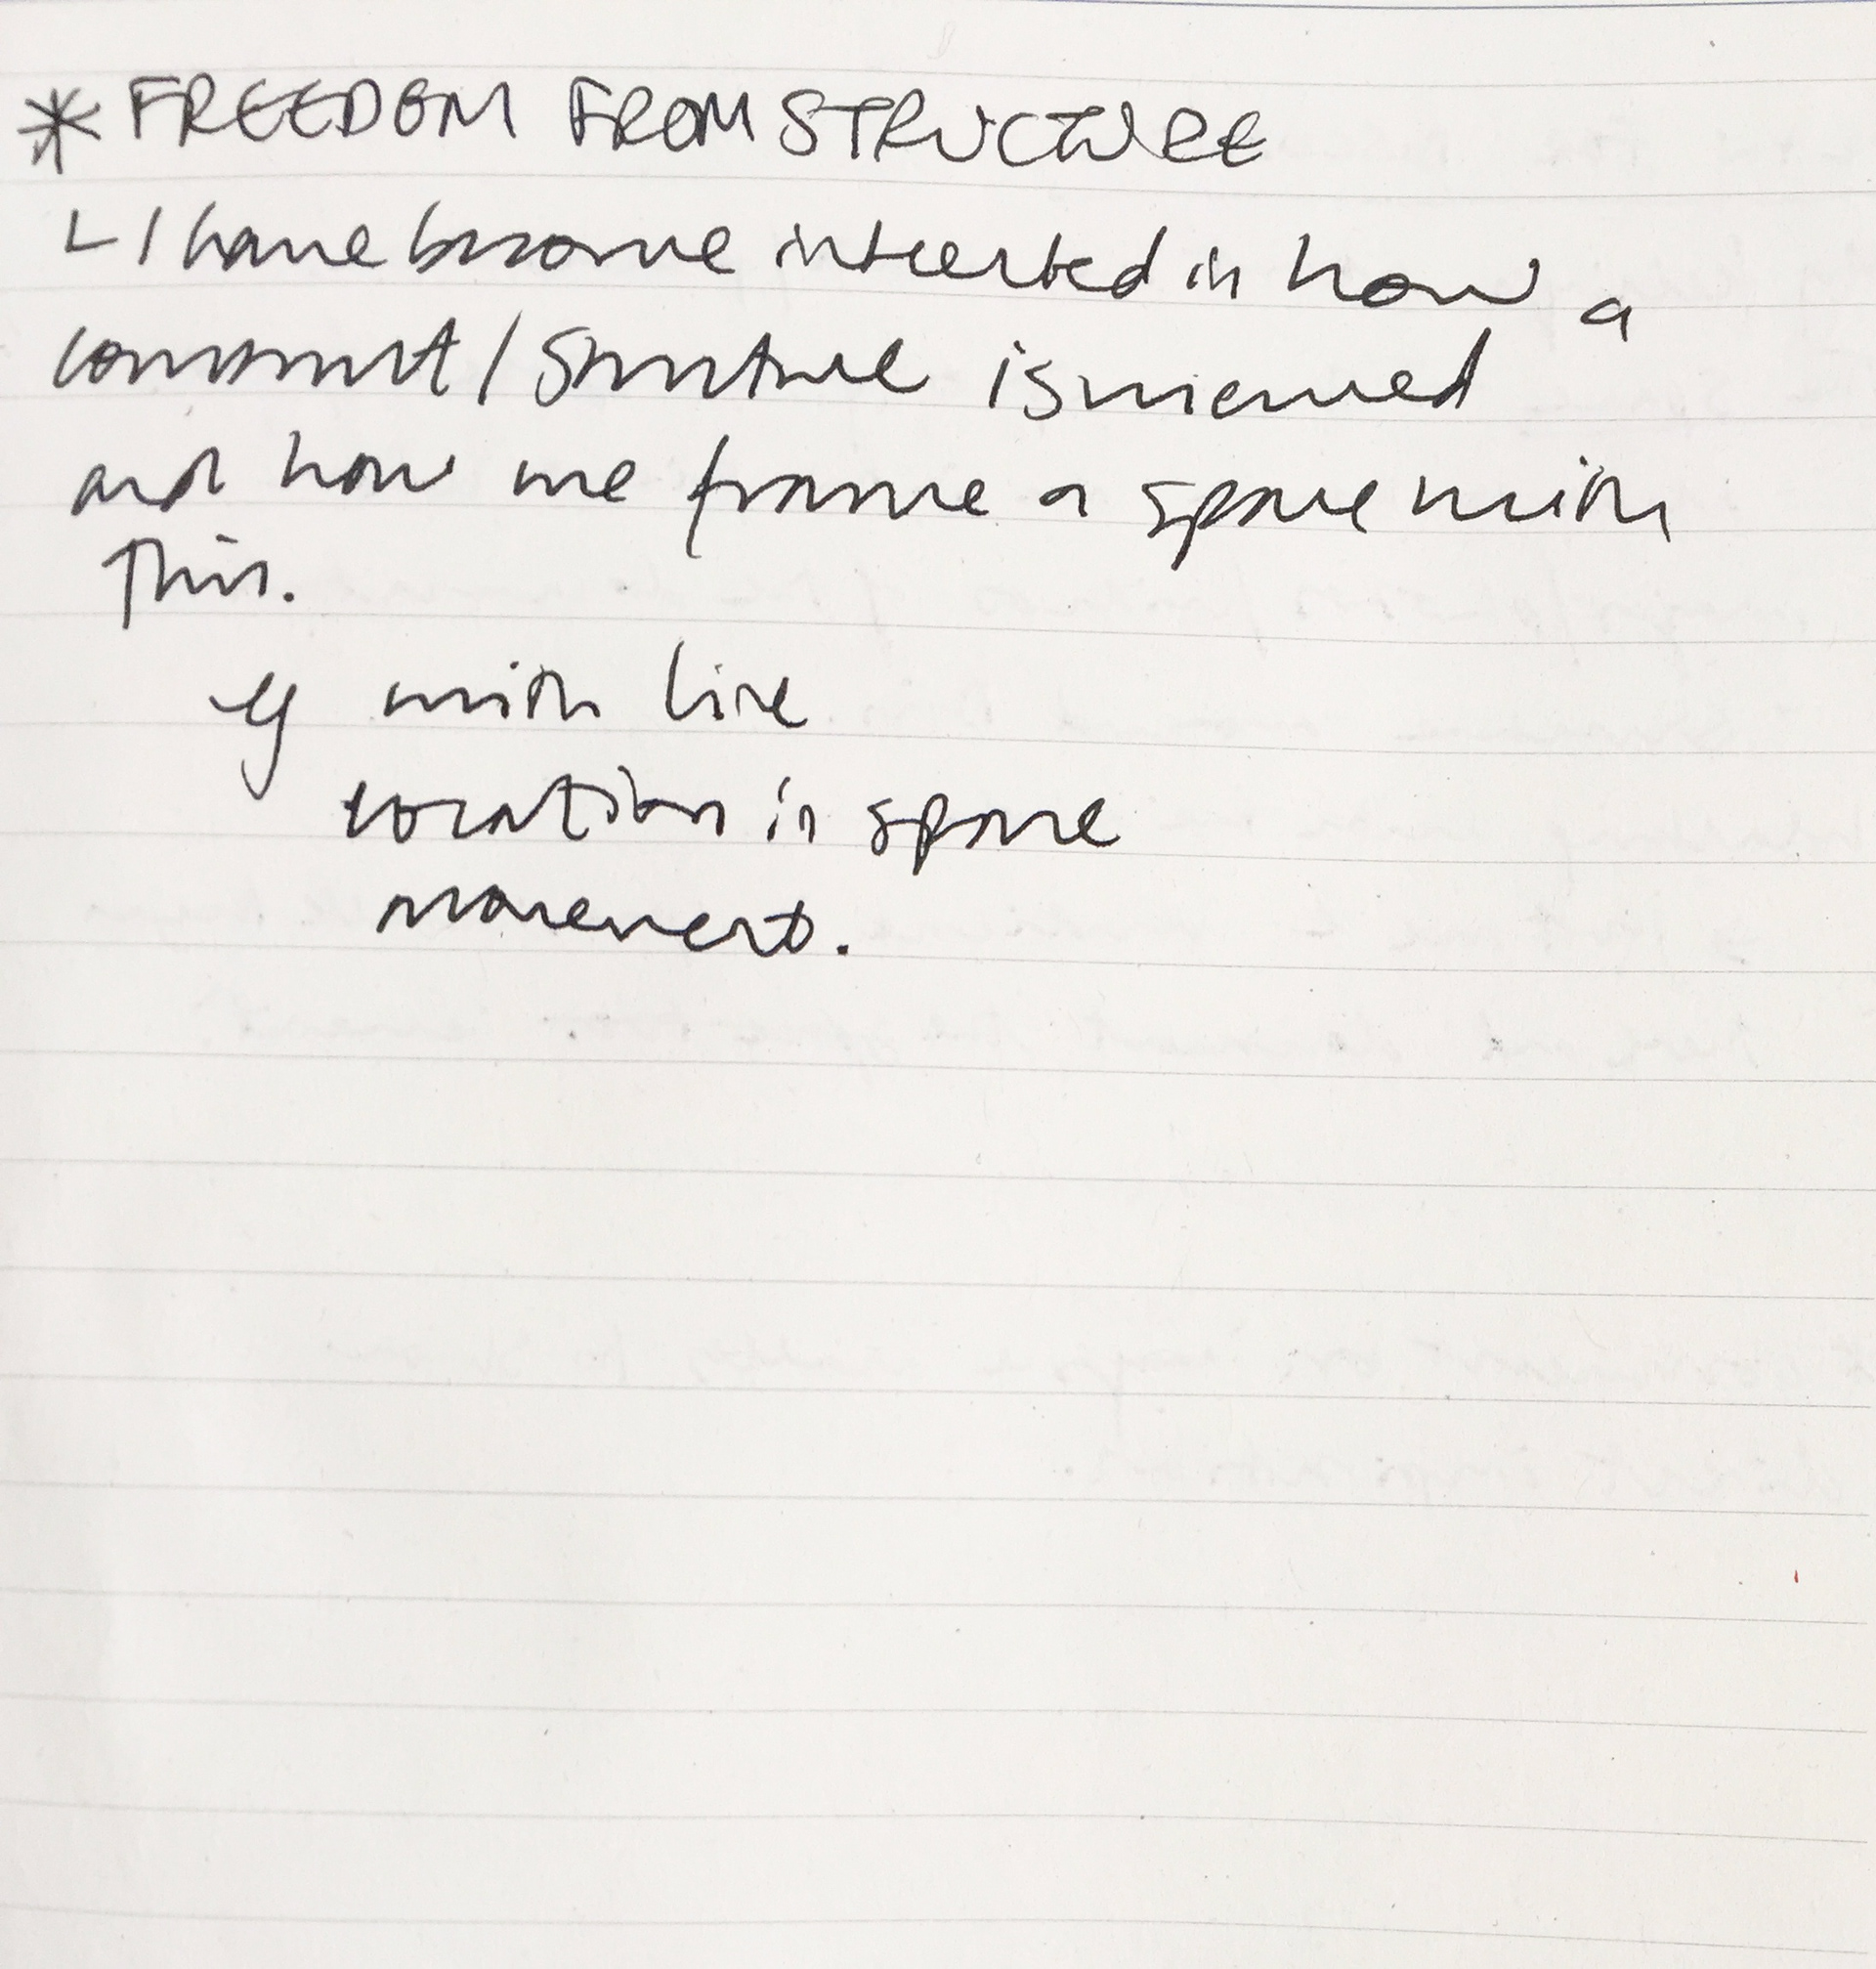 * FREEDOM FROM STRUCTURE
L I have become interested in how a
construct / structure is viewed
and how we frame a space with
this.
eg with line
location in space
movement.